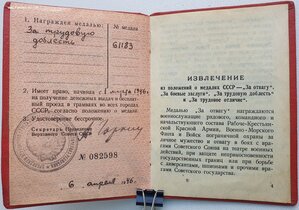 1. Награжден медалью: № медали
За трудовую
доблесть 61183
2. Имеет право, начиная с
на получение денежных выдач и бесплат-
ный проезд в трамваях во всех городах
СССР, согласно положению о медали.
3. Удостоверение бессрочно.
Секретарь Президиума
Верховного Совета СССР
Горкин
№ 082598
6 апреля
ИЗВЛЕЧЕНИЕ
из положений о медалях СССР — „За отвагу“,
„За боевые заслуги“, „За трудовую доблесть“
и „За трудовое отличие“.
Медалью „За отвагу“ награждаются
военнослужащие рядового, командного и
начальствующего состава Рабоче-Крестьян-
ской Красной Армии, Военно-Морского
Флота и Войск пограничной охраны за
личное мужество и отвагу в боях с вра-
гами Советского Союза на театре военных
действий, при защите неприкосновенности
государственных границ или при борьбе
с диверсантами, шпионами и прочими вра-
гами Советского государства.